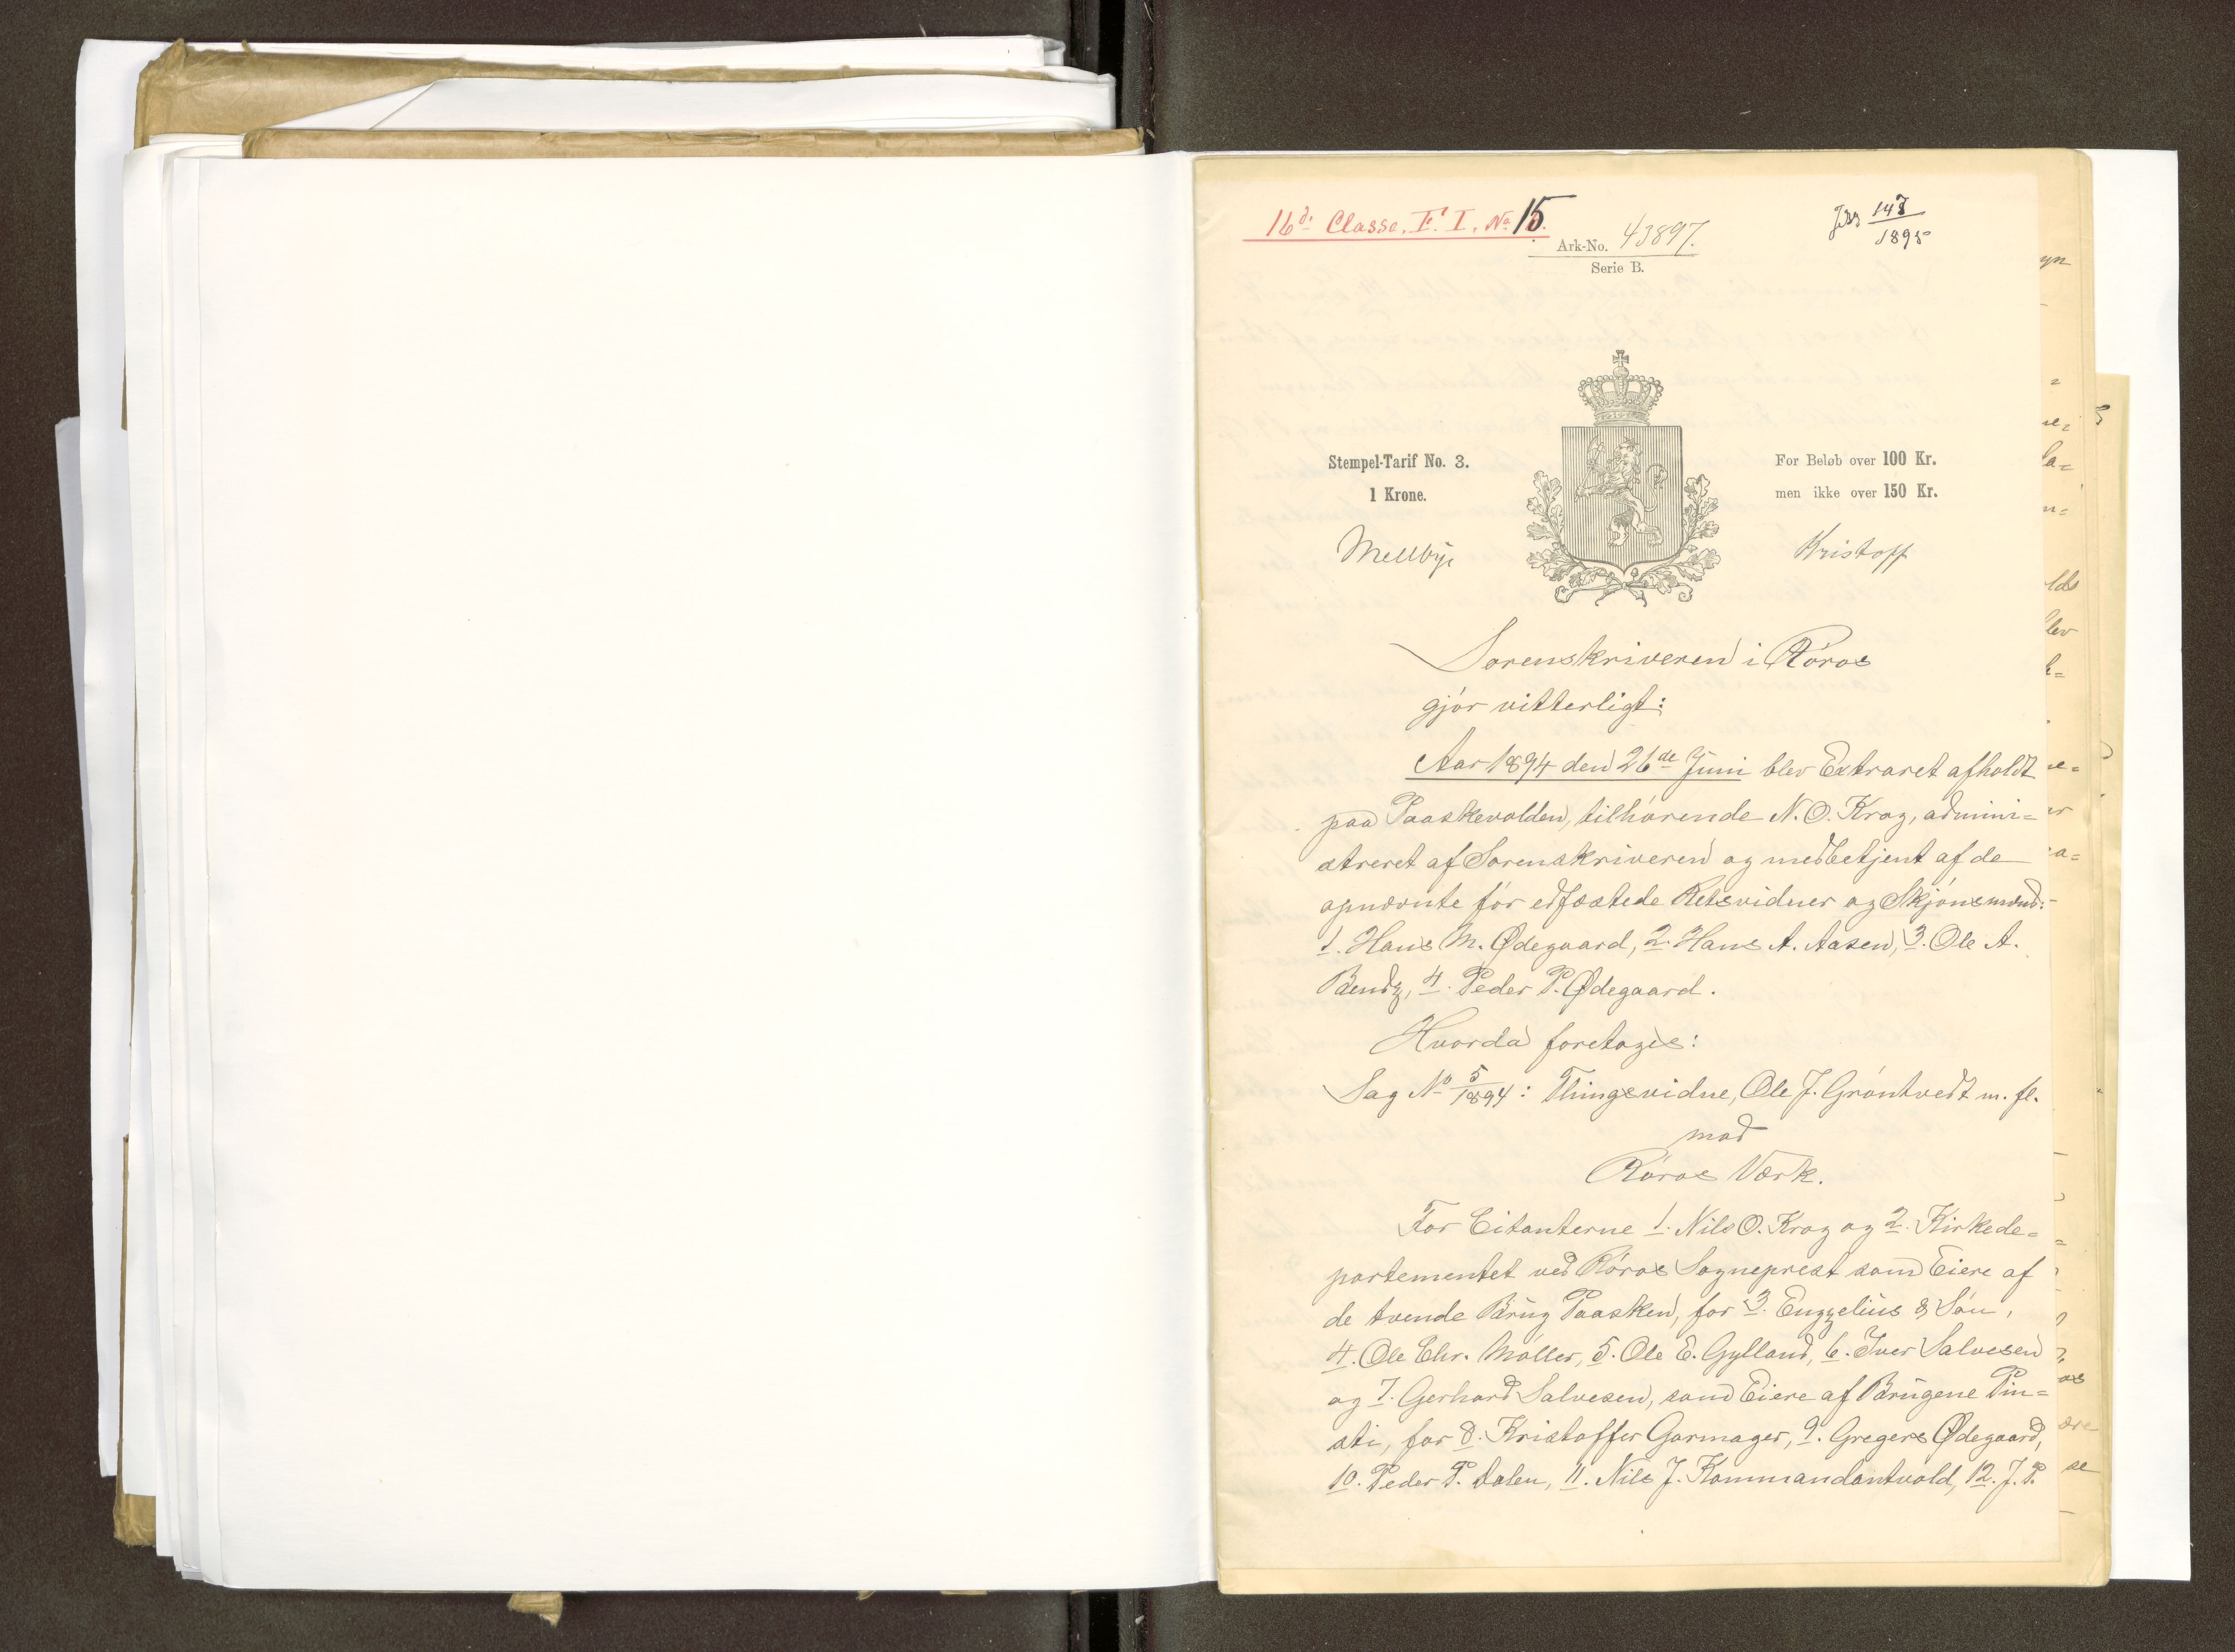 16de Classe. F. I. No. 15.
Ark-No. 43897.
Serie B.
147
1895
Stempel-Tarif No. 3.
1 Krone.
For Beløb over 100 Kr.
men ikke over 150 Kr.
Mellbye
Kristoff
Sorenskriveren i Røros
gjør vitterligt:
Aar 1894 den 26de Juni blev Extraret afholdt
paa Paaskevolden, tilhørende N. O. Krog, admini=
streret af Sorenskriveren og medbetjent af de
opnævnte før edfæstede Retsvidner og Skjønsmænd:
1. Hans M. Ødegaard, 2. Hans A. Aasen, 3. Ole A.
Bendz, 4. Peder P. Ødegaard.
Hvorda foretoges:
Sag No 5/1894: Thingsvidne, Ole J. Grøntvedt m. fl.
mod
Røros Værk.
For Citanterne 1. Nils O. Krog og 2. Kirkede=
partementet ved Røros Sogneprest som Eiere af
de tvende Brug Paasken, for 3. Engzelius & Søn,
4. Ole Chr. Møller, 5. Ole E. Gylland, 6. Iver Salvesen
og 7. Gerhard Salvesen, som Eiere af Brugene Pin=
sti, for 8. Kristoffer Gormager, 9. Gregers Ødegaard,
10. Peder P. Dalen, 11. Nils J. Kommandantvold, 12. J. P.